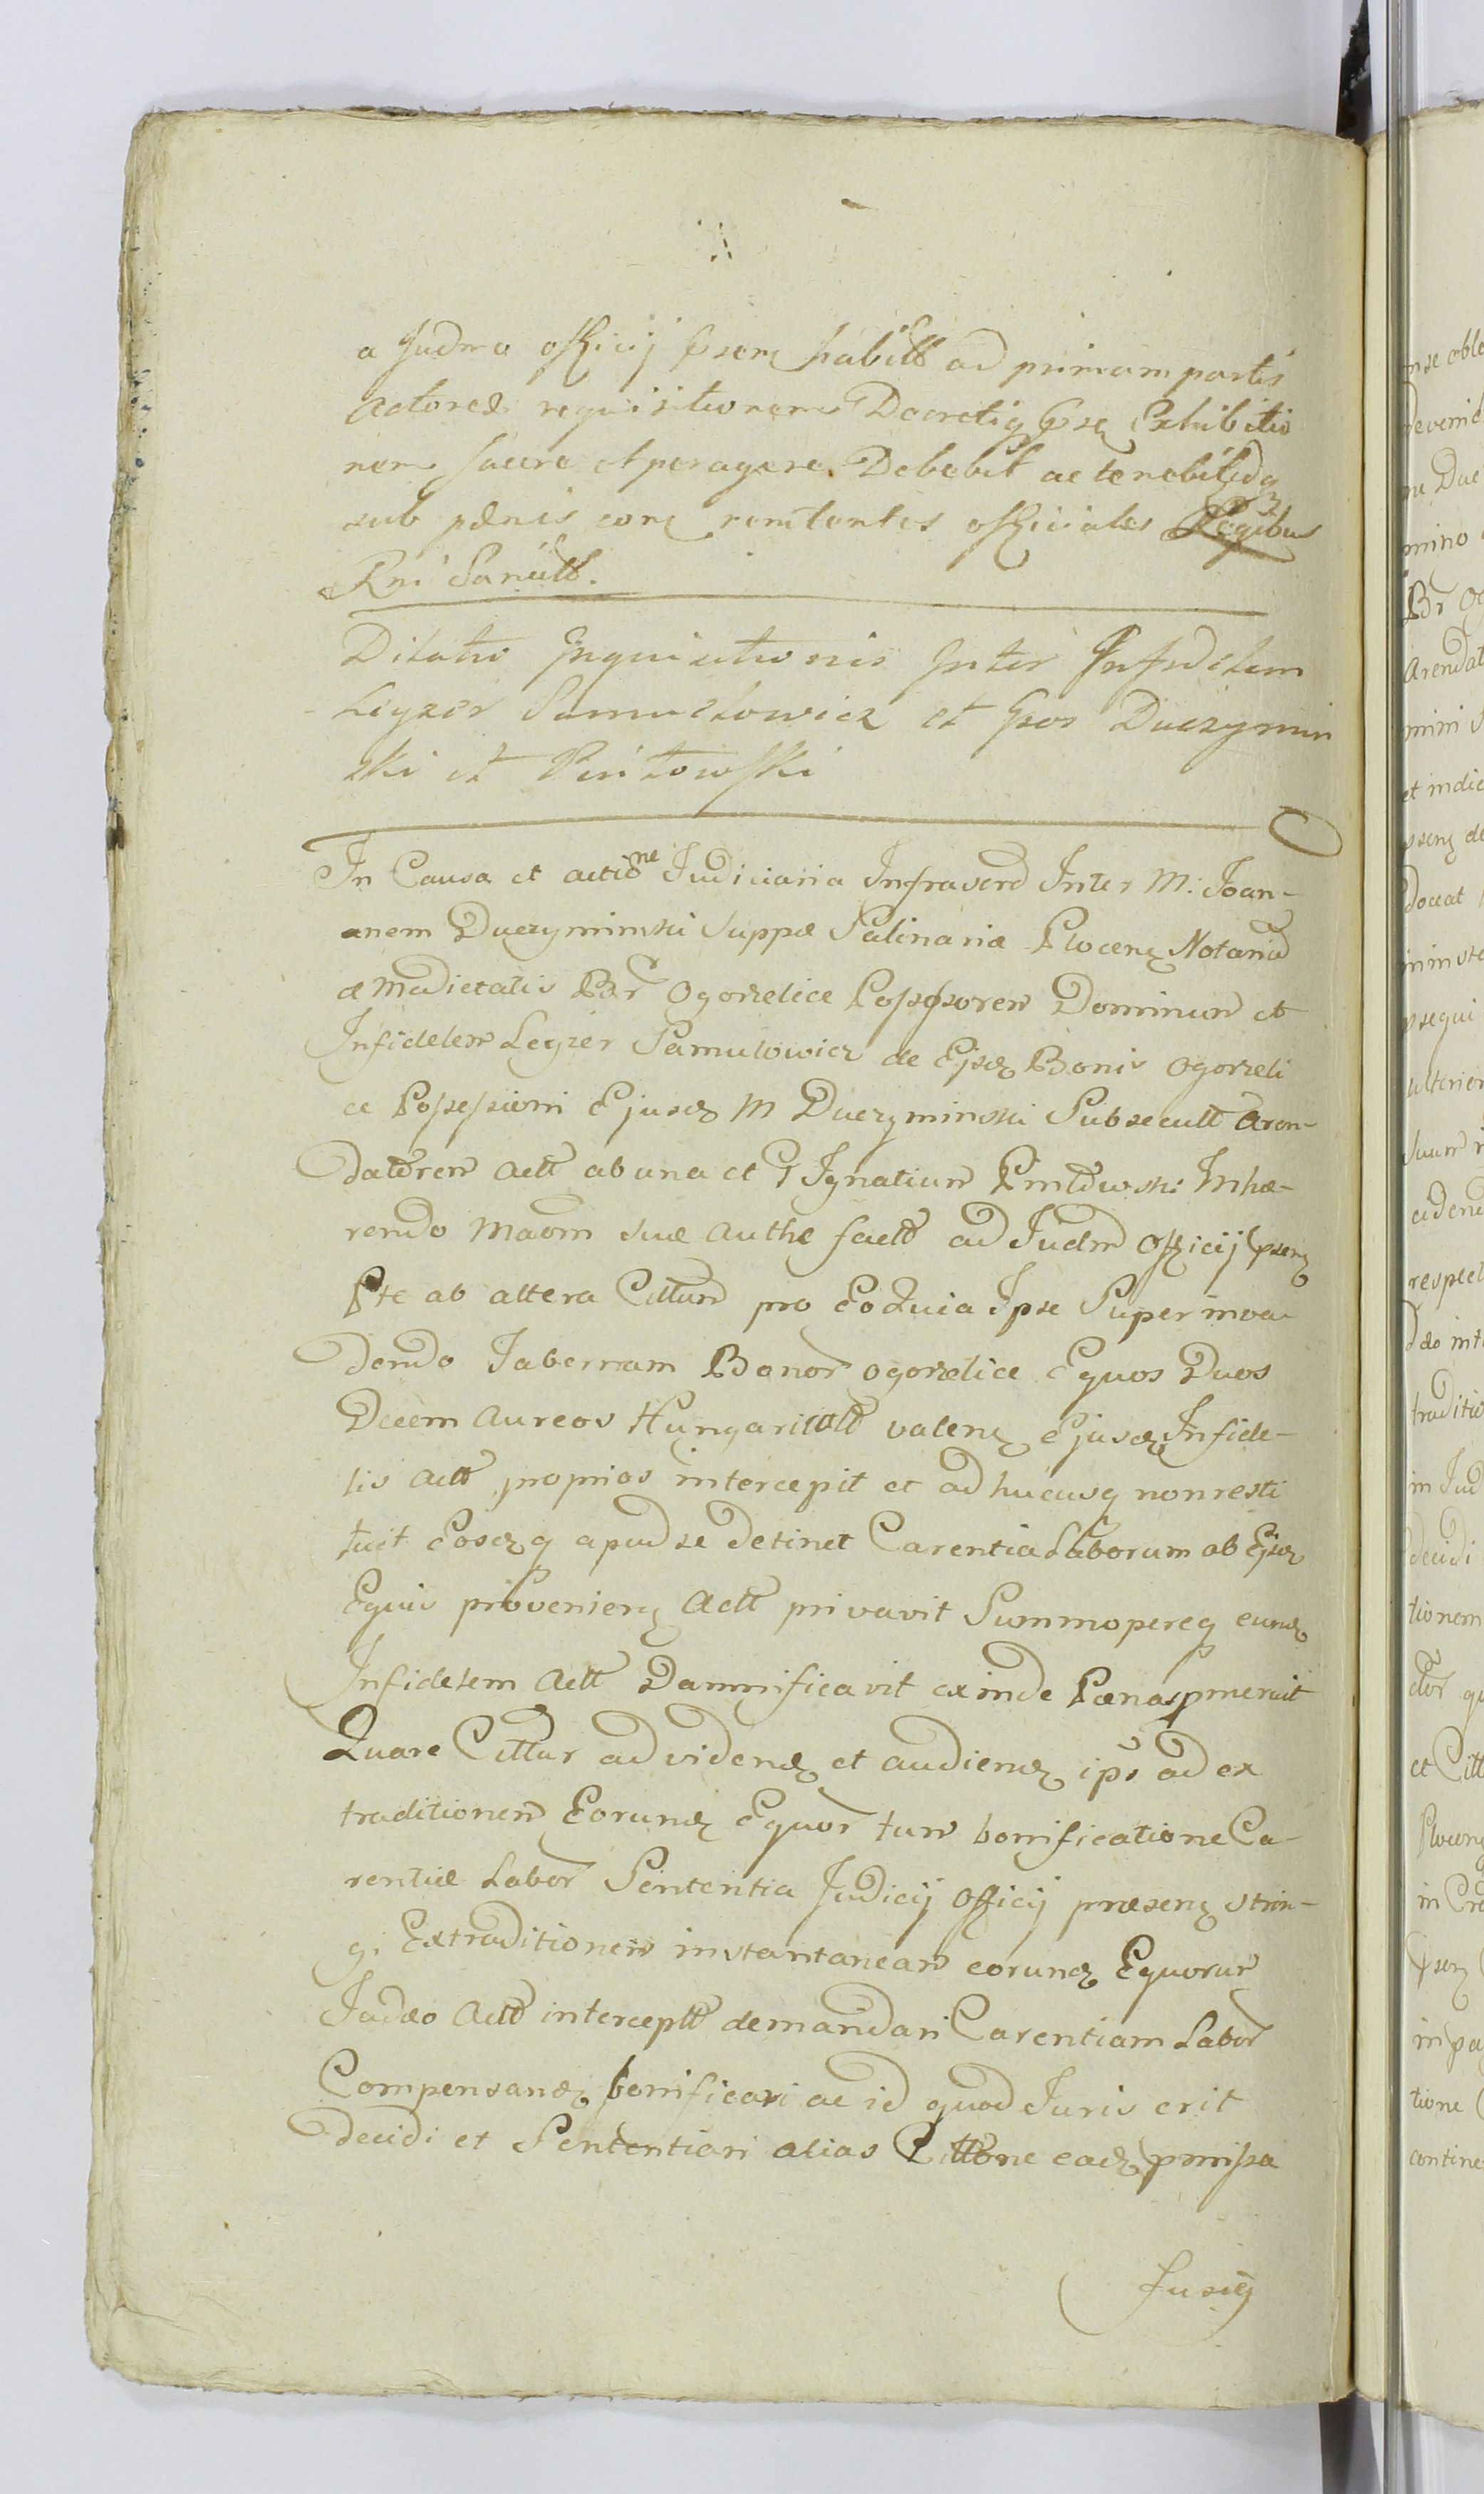 a Judm a officij psenq habitt ad primam partis
Actoreæ requisitionem Decretiq psq Exhibitio
nem facere et peragere Debebit ac tenebitq
sub pænis conq renitentes officiales Legibus
Rni Sanitt.
Dilatio Inquisitionis Inter Infidelem
Leyzer Samulowicz et Gsos Duczymin
ski et Pniłowski
In Causa et actione Judiciaria Infrascrd Inter M: Joan-
nem Duczyminski Suppæ Salinariæ Plocenq Notariũ
æ Medietatis Br Ogorzelice Possessorem Dominum et
Infidelem Leyzer Samulowicz de Ejsdq Bonis Ogorzeli
ce Possessioni Ejusdq M Duczyminski Subsecutt Aren-
datorem Actt ab una et G Ignatium Pniłowski Inhæ-
rendo Maom suæ Authæ factt ad Judm Officij psenq
Pte ab altera Cittum pro Eo Quia Ipse Super inva-
dendo Tabernam Bonor Ogorzelice Equos Duos
Decem Aureos Hungaricatt valenq Ejusdq Infide-
lis Actt proprios intercepit et ad hucusq non resti
tuit Eosdq q apud se Detinet Carentia Laborum ab Ejsdq
Equis provenienq Actt privavit Summopereq eundq
Infidelem Actt Damnificavit exinde Pænas pmeruit
Quare Cittur ad videndq et audiendq ips ad ex
traditionem Eorundq Equor tum bonificatione Ca-
rentiæ Labor Sententia Judicij Officij præsenq strin-
gi Extraditionem instantaneam eorundq Equorum
Judæo Actt intercептt demandari Carentiam Labor
Compensandq bonificari ac id quod Juris erit
decidi et Sententiari alias Cittone eadq pmissa
fusiq